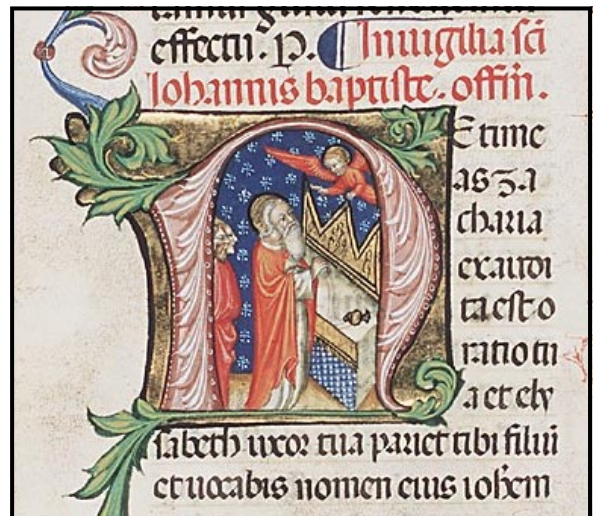 effectū. P. In uigilia sc̄i
Iohannis baptiste. offm̄.
NE time
as za
charia
exaudi
ta est o
ratio tu
a et ely
sabeth uxor tua pariet tibi filiū
et uocabis nomen eius ioh̄em